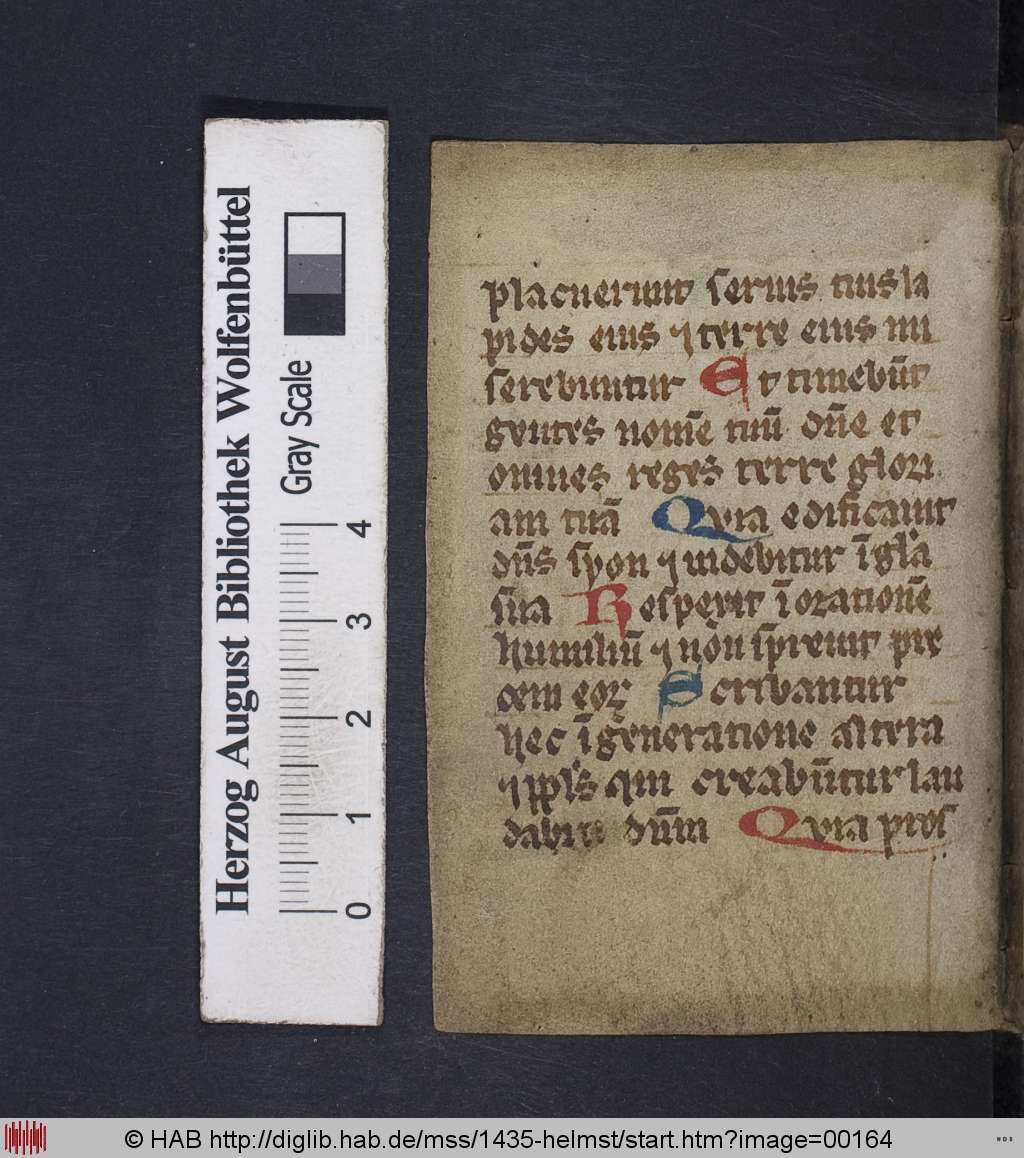 Herzog August Bibliothek Wolfenbüttel
Gray Scale
0 1 2 3 4
placuerunt seruis tuis la
pides eius ⁊ terre eius mi
serebuntur Et timebūt
gentes nomē tuū dn̄e et
omnes reges terre glori
am tuā Quia edificauit
dn̄s syon ⁊ uidebitur ī gl̄a
sua Respexit ī orationē
humiliū ⁊ non spreuit pre
cem eoꝝ Scribantur
hec ī generatione altera
⁊ ppl̄s qui creabūtur lau
dabit dn̄m Quia pros
© HAB http://diglib.hab.de/mss/1435-helmst/start.htm?image=00164